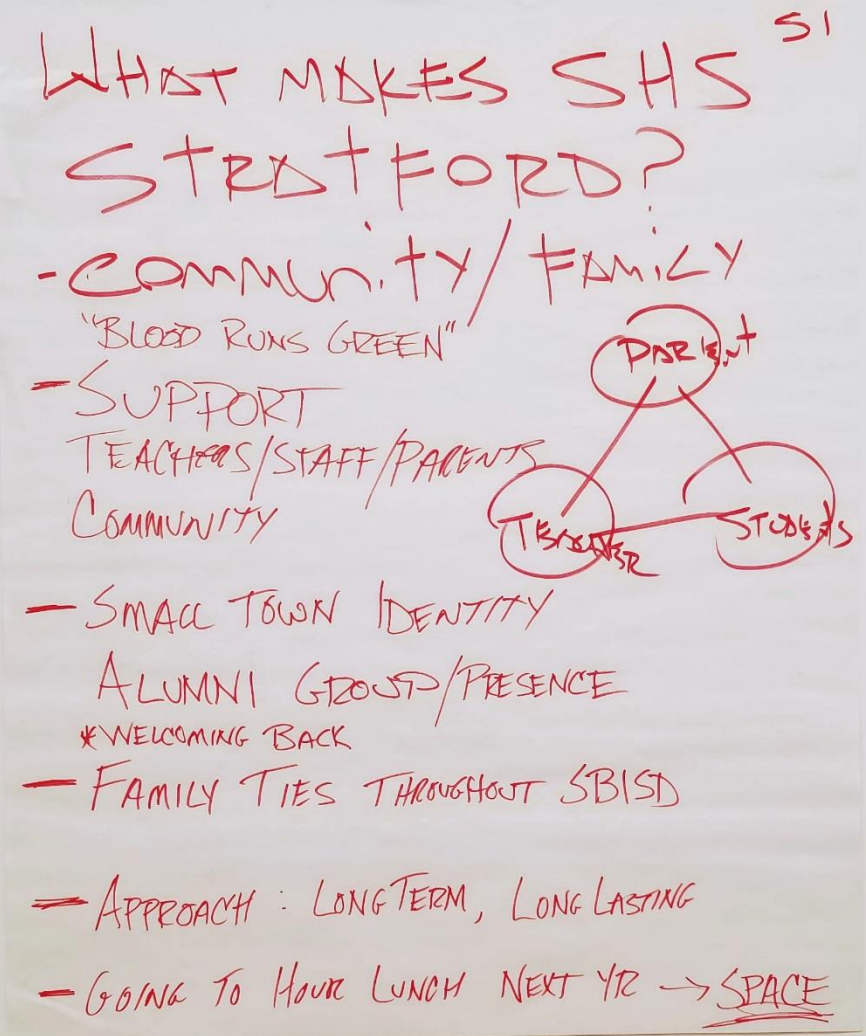 S1
WHAT MAKES SHS
STRATFORD?
- COMMUNITY / FAMILY
"BLOOD RUNS GREEN"
- SUPPORT
TEACHERS/STAFF/PARENTS
COMMUNITY
PARENT
TEACHER
STUDENTS
- SMALL TOWN IDENTITY
ALUMNI GROUP/PRESENCE
*WELCOMING BACK
- FAMILY TIES THROUGHOUT SBISD
- APPROACH : LONG TERM, LONG LASTING
- GOING TO HOUR LUNCH NEXT YR → SPACE